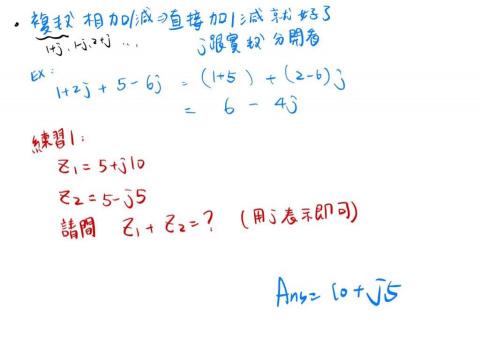 • 複數 相加/減 ⇒ 直接加/減 就好了
1+j, 1-j, 2+j ...
j跟實數分開看
EX:
1+2j + 5-6j = (1+5) + (2-6)j
= 6 - 4j
練習1:
Z1 = 5+j10
Z2 = 5-j5
請問 Z1 + Z2 = ? (用j表示即可)
Ans= 10+j5